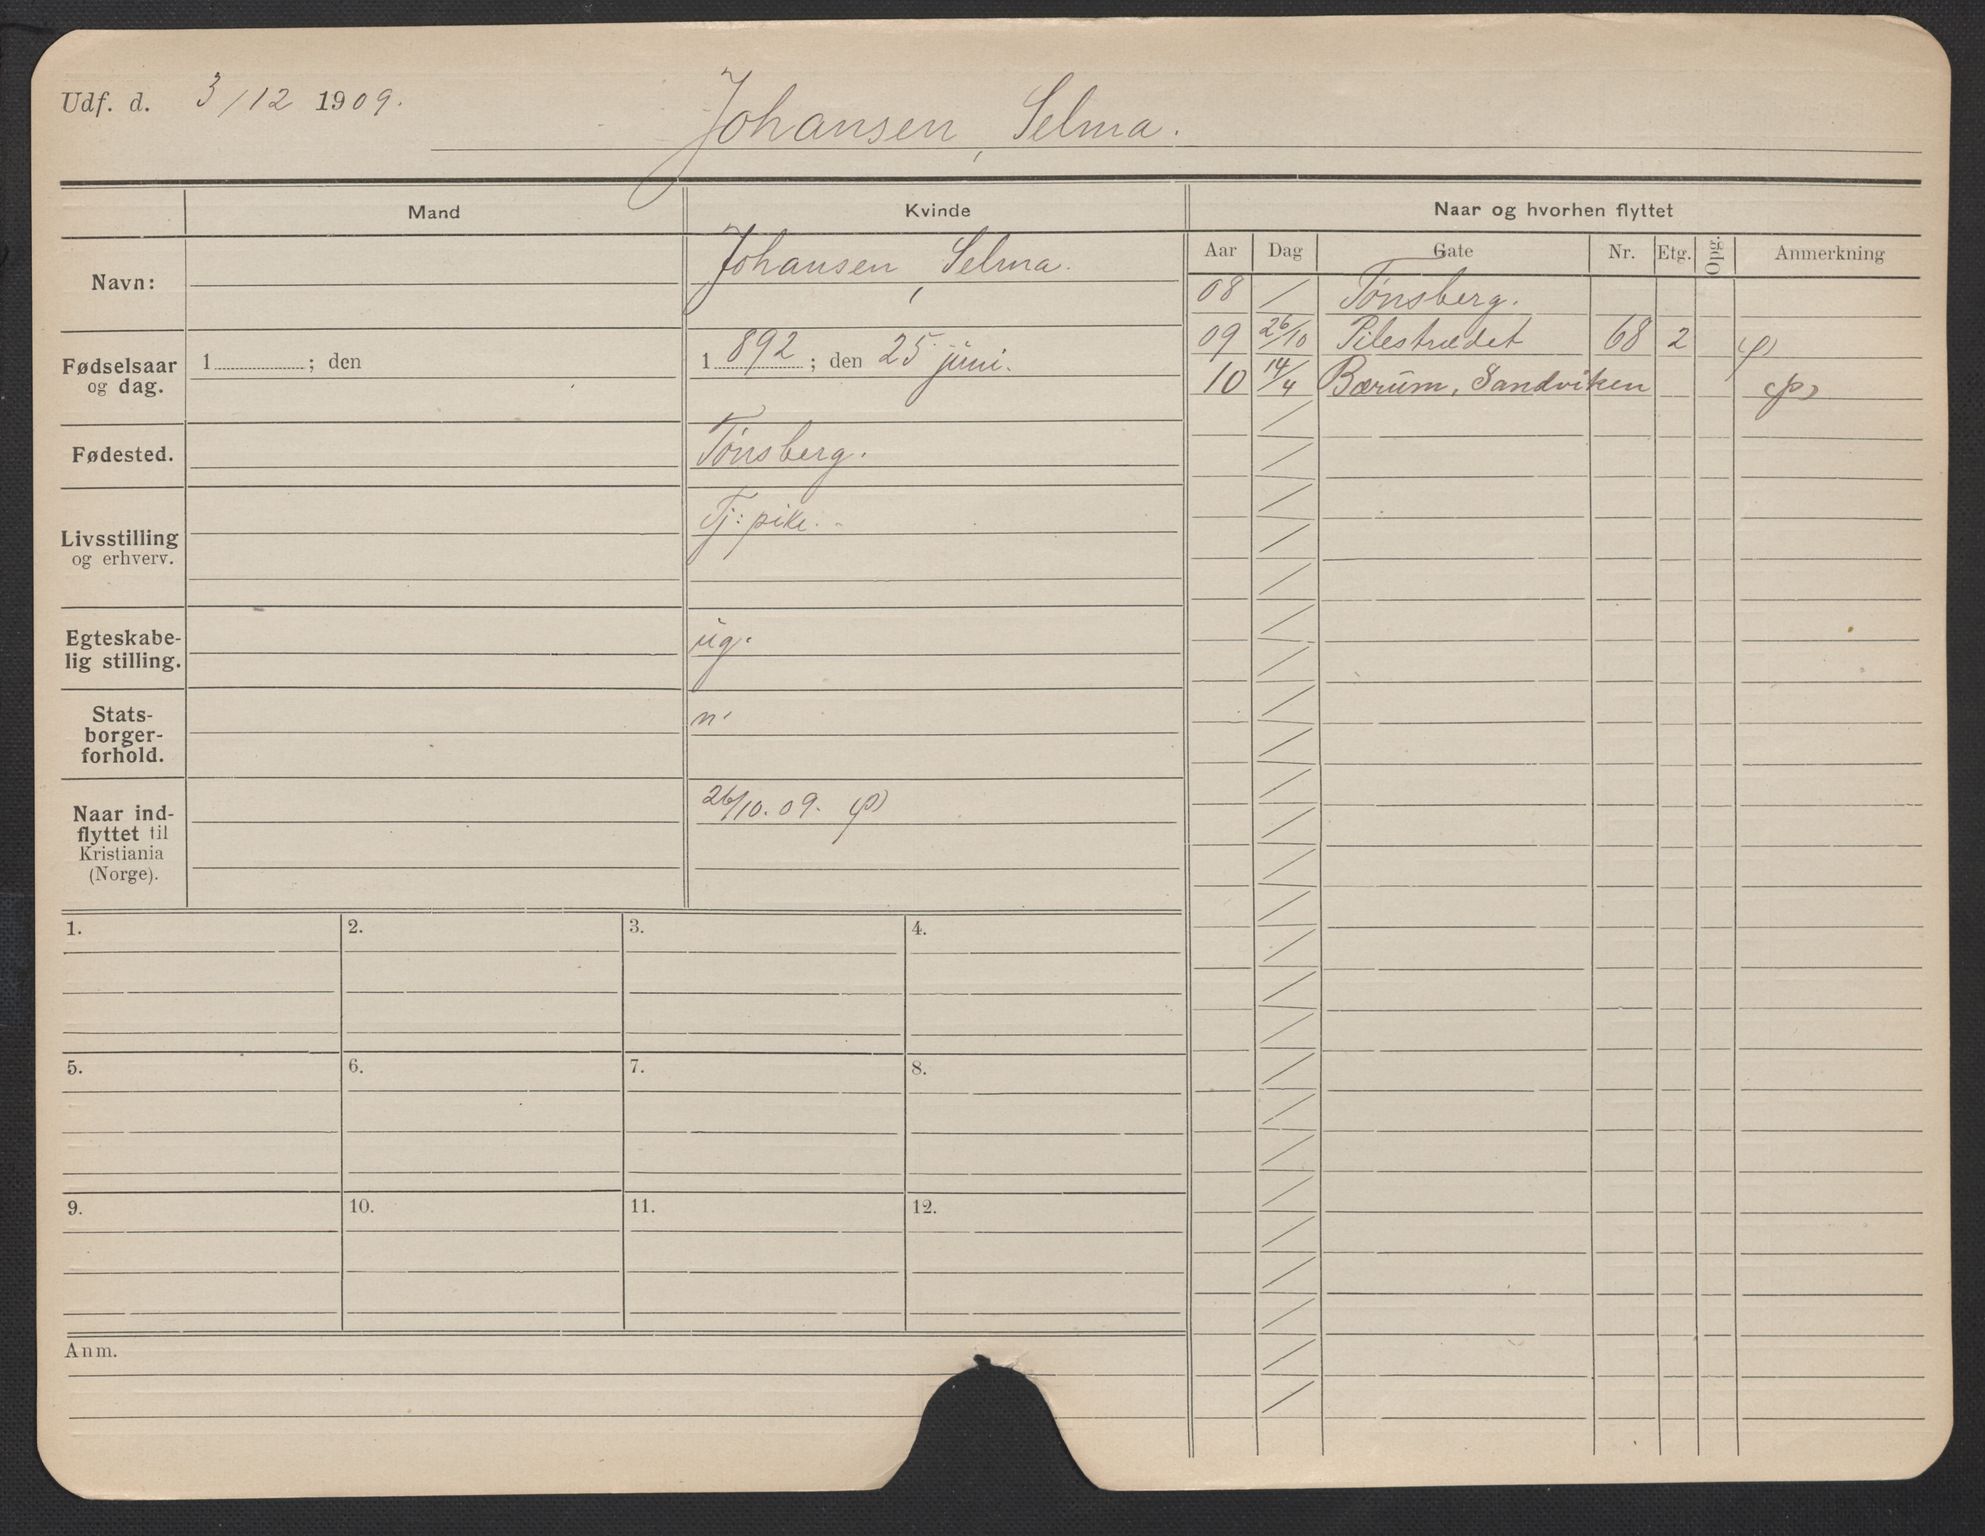 Udf. d. 3/12 1909.
Johansen, Selma.
Mand Kvinde Naar og hvorhen flyttet
Aar Dag Gate Nr. Etg. Opg. Anmerkning
Navn: Johansen, Selma.
08 / Tønsberg.
09 26/10 Pilestrædet 68 2
10 14/4 Bærum, Sandviken (p)
Fødselsaar og dag. 1 ; den 1892 ; den 25 juni.
Fødested. Tønsberg.
Livsstilling og erhverv. Tj: pike.
Egteskabe-
lig stilling. ug.
Stats-
borger-
forhold. n.
Naar ind-
flyttet til
Kristiania
(Norge). 26/10.09. (p)
1. 2. 3. 4.
5. 6. 7. 8.
9. 10. 11. 12.
Anm.